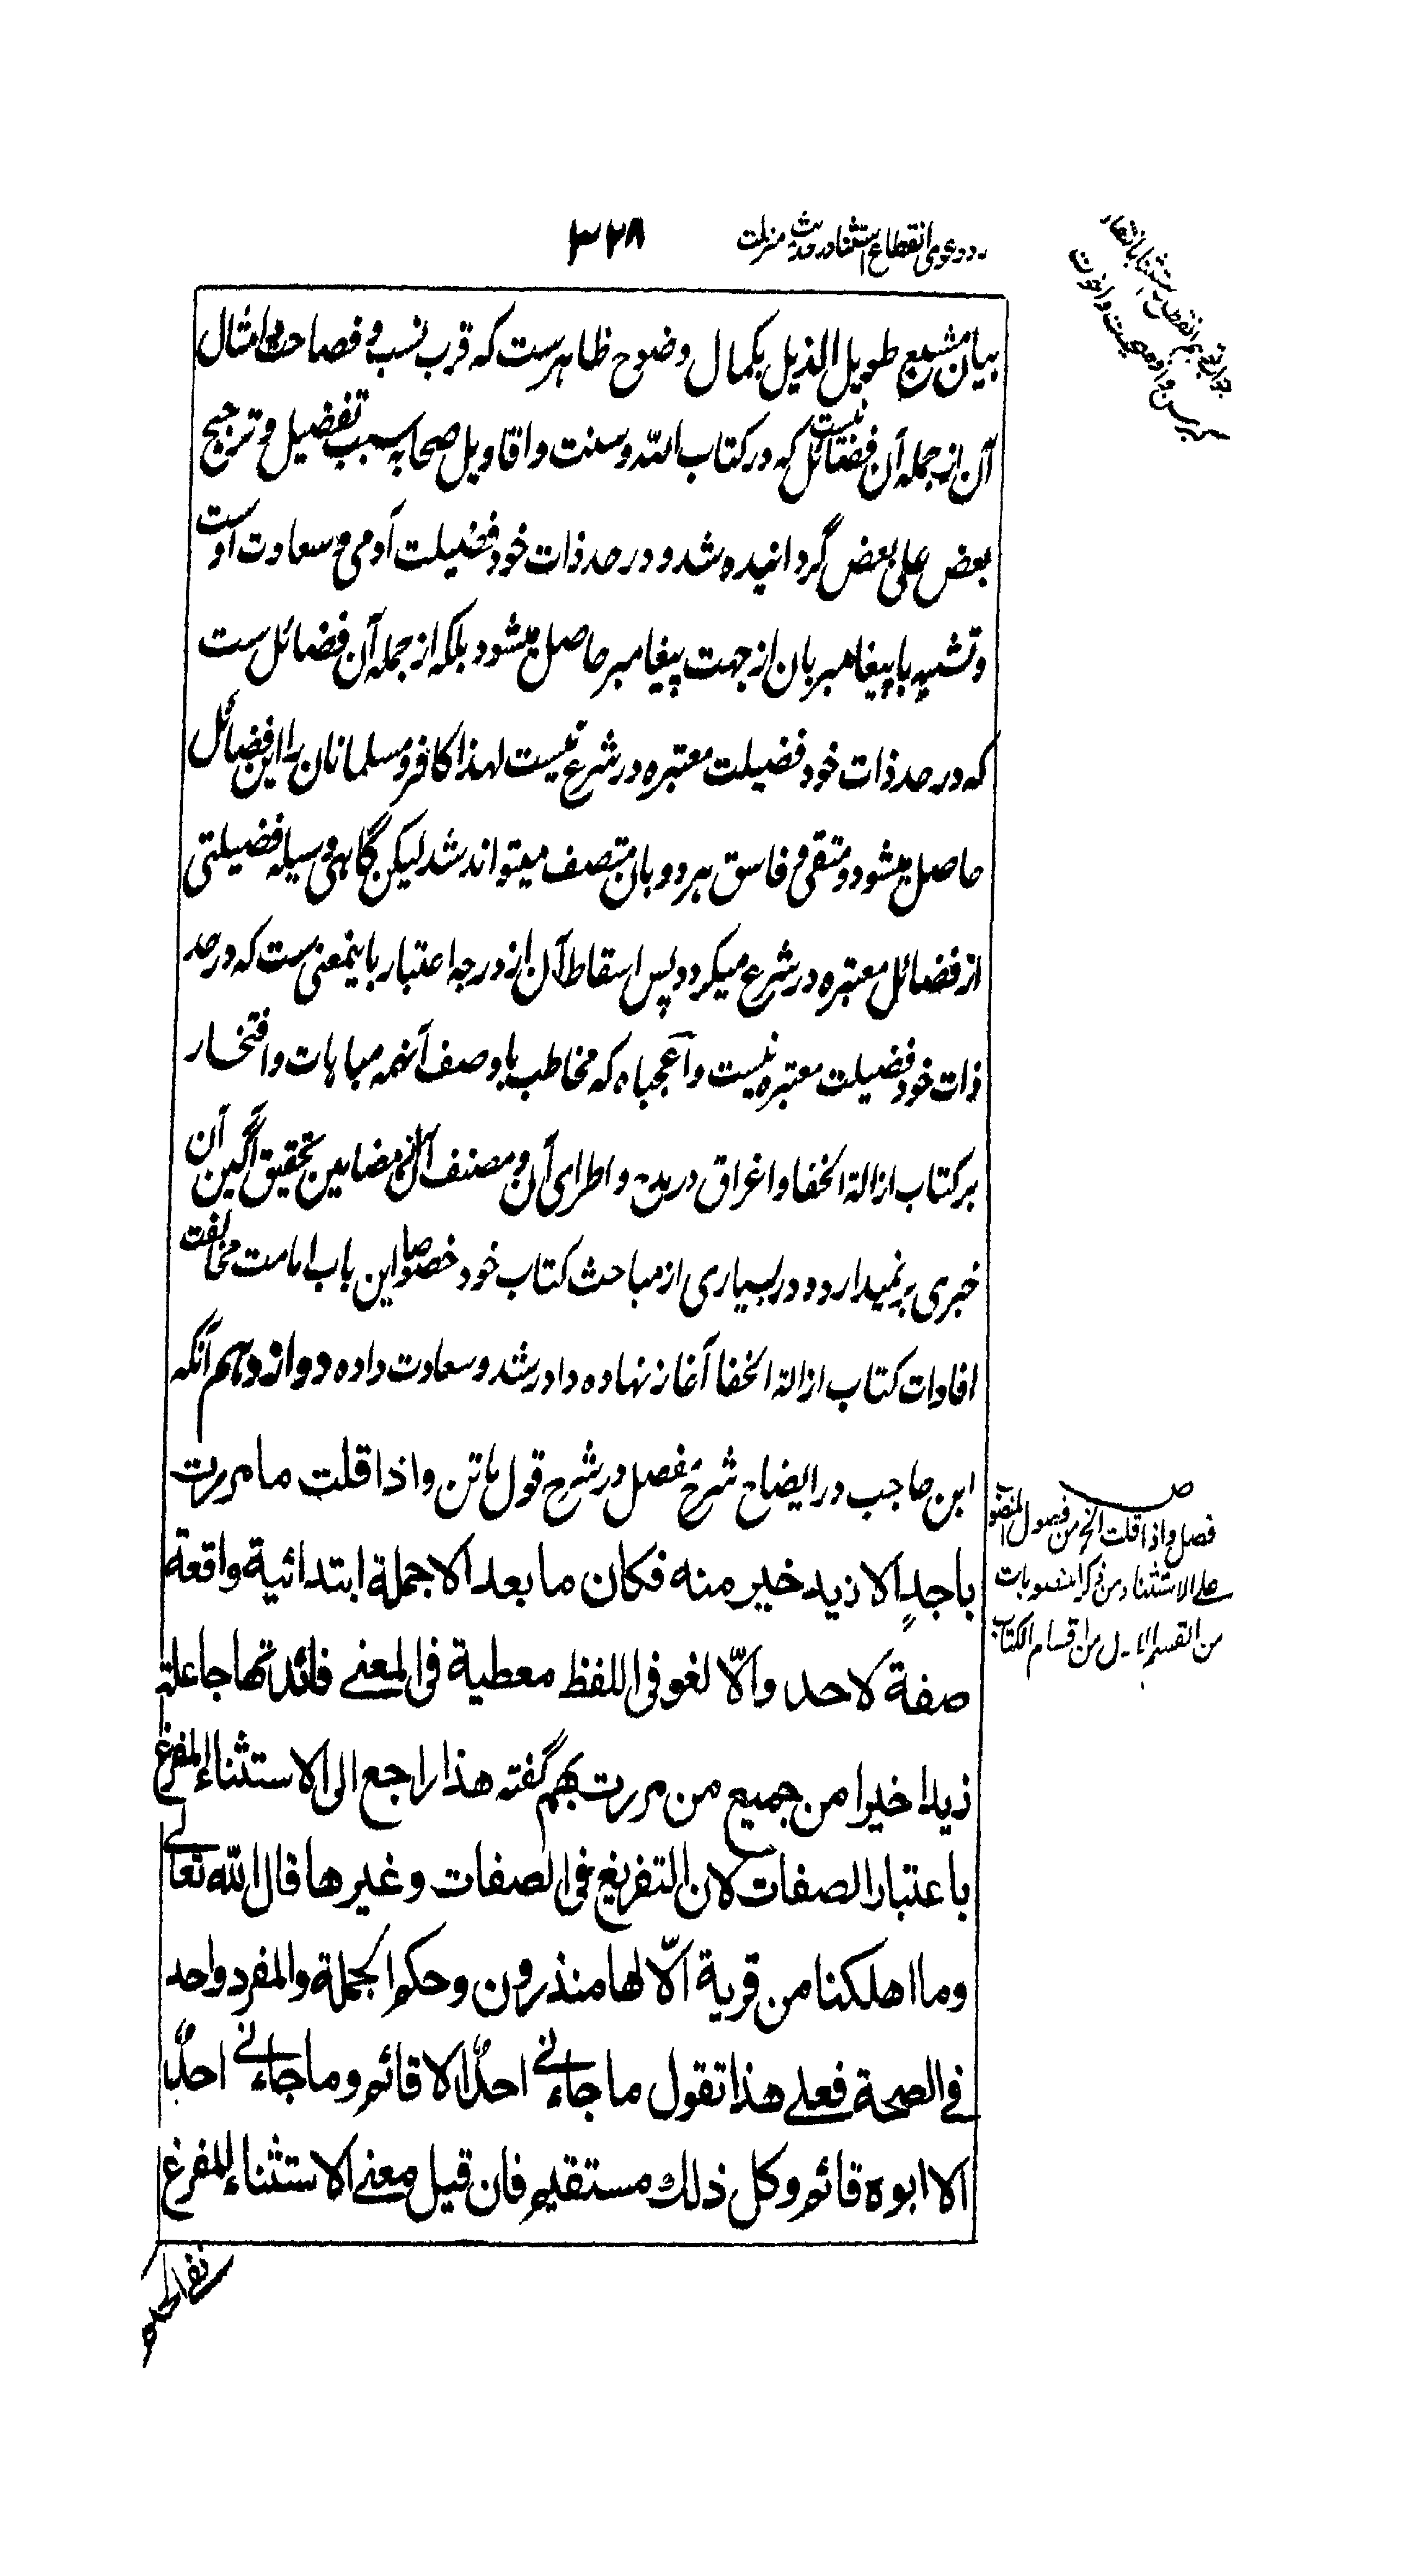 رد دعوی انقطاع استثنا در حدیث منزلت
۳۲۸
بیان مشبع طویل الذیل بکمال وضوح ظاهرست که قرب نسب و فصاحت و امثال
آن از جمله آن فضائل نیست که در کتاب الله و سنت و اقاویل صحابه سبب تفضیل و ترجیح
بعض علی بعض گردانیده شد و در حد ذات خود فضیلت آدمی و سعادت اوست
و تشبیه با پیغامبر بان از جهت پیغامبر حاصل میشود بلکه از جمله آن فضائل ست
که در حد ذات خود فضیلت معتبره در شرع نیست لهذا کافر و مسلمانان را این فضائل
حاصل میشود و متقی و فاسق هر دو بان متصف میتواند شد لیکن گاهی وسیله فضیلتی
از فضائل معتبره در شرع میگردد پس اسقاط آن از درجه اعتبار باینمعنی ست که در حد
ذات خود فضیلت معتبره نیست واعجباه که مخاطب باوصف آنهمه مباهات و افتخار
بر کتاب ازالة الخفا و اغراق در مدح و اطرای آن و مصنف آن از مضامین تحقیق آگین آن
خبری بر نمیدارد و در بسیاری از مباحث کتاب خود خصوصا این باب امامت مخالفت
افادات کتاب ازالة الخفا آغاز نهاده داد رشد و سعادت داده دوازدهم آنکه
ابن حاجب در ایضاح شرح مفصل در شرح قول ماتن واذا قلت ما مررت
باحدٍ الا زید خیر منه فکان ما بعد الا جملة ابتدائیة واقعة
صفة لاحد والّا لغو فی اللفظ معطیة فی المعنی فائدتها جاعلة
زیدا خیرا من جمیع من مررت بهم گفته هذا راجع الی الاستثناء المفرغ
باعتبار الصفات لان التفریغ فی الصفات وغیرها قال الله تعالی
وما اهلکنا من قریة الّا لها منذرون وحکم الجملة والمفرد واحد
فی الصحة فعلی هذا تقول ما جاءنی احدٌ الا قائم وما جاءنی احدٌ
الا ابوه قائم وکل ذلك مستقیم فان قیل معنی الاستثناء المفرغ
فصل واذا قلت الخ من فصول المنصوب
علی الاستثناء من ذکر المنصوبات
من القسم الاول من اقسام الکتاب